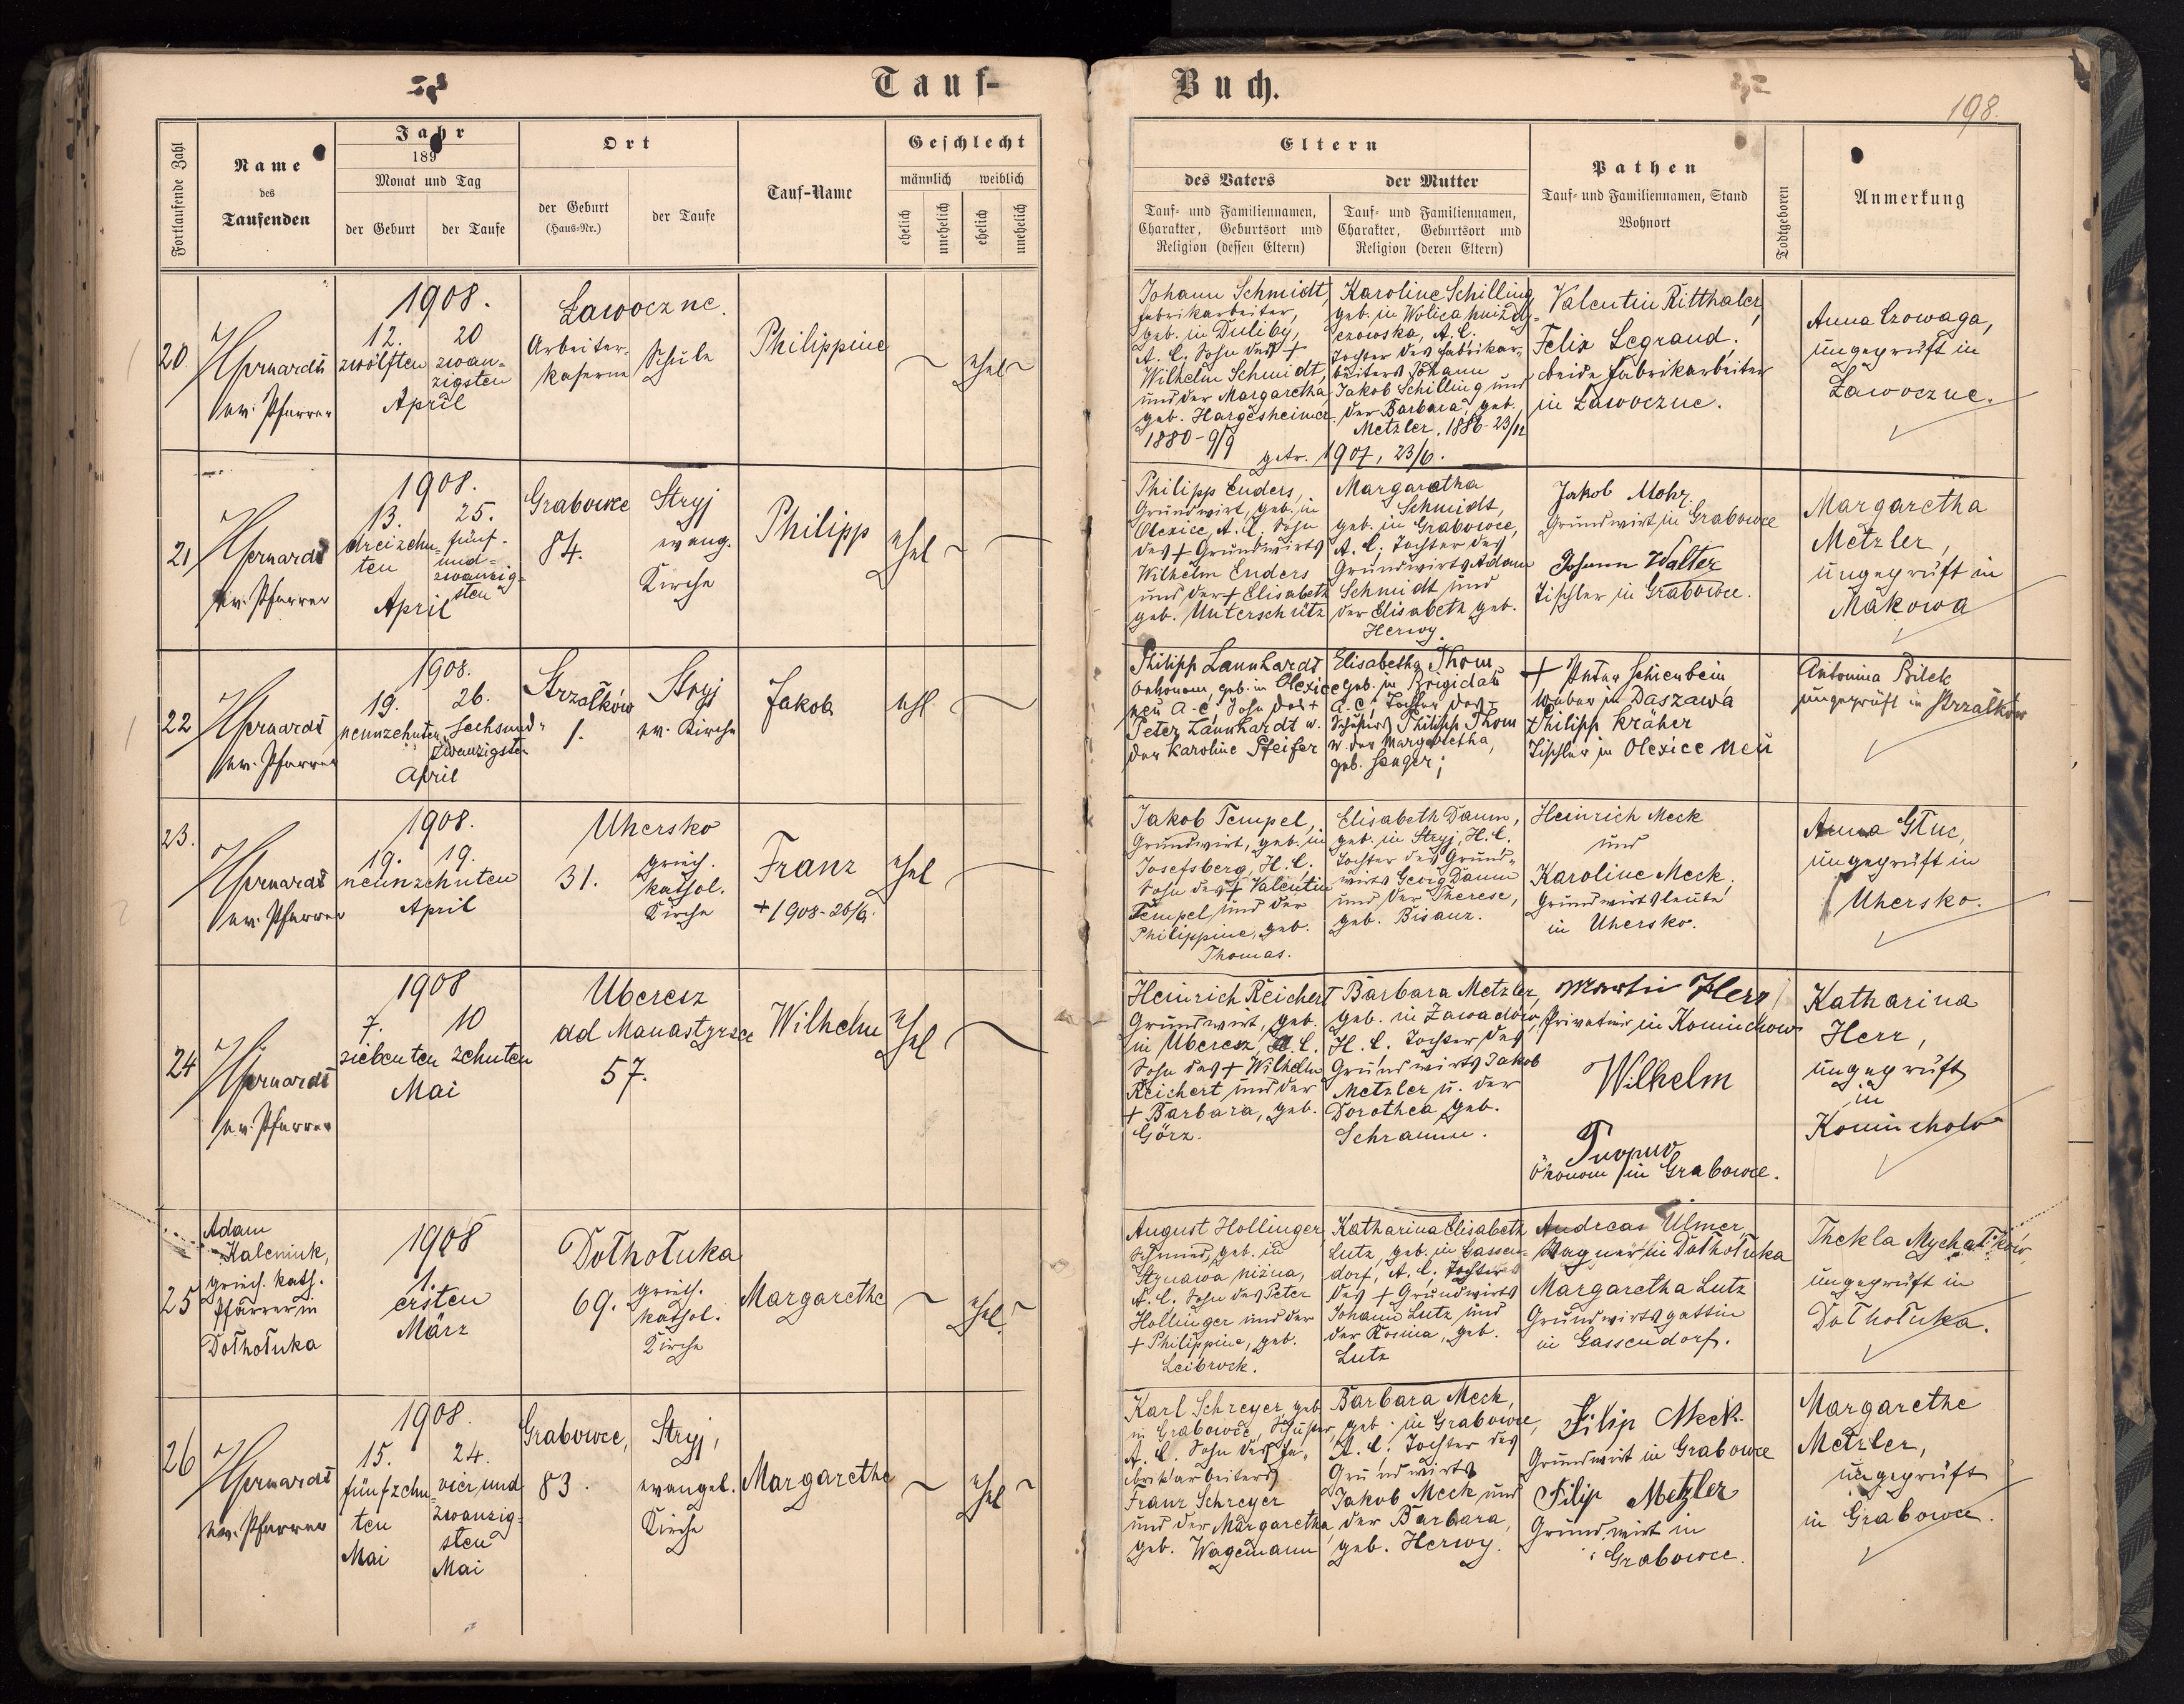 Tauf-
Buch.
198.
Fortlaufende Zahl
Name
des
Taufenden
Jahr
189
Monat und Tag
der Geburt
der Taufe
Ort
der Geburt
(Haus-Nr.)
der Taufe
Tauf-Name
Geschlecht
männlich weiblich
ehelich
unehelich
ehelich
unehelich
Eltern
des Vaters
Tauf- und Familiennamen,
Charakter, Geburtsort und
Religion (dessen Eltern)
der Mutter
Tauf- und Familiennamen,
Charakter, Geburtsort und
Religion (deren Eltern)
Pathen
Tauf- und Familiennamen, Stand
Wohnort
Todtgeboren
Anmerkung
20
ev. Pfarrer
1908.
12. 20
zwölften zwan-
zigsten
April
Ławoczne.
Arbeiter-
kaserne
Schule
Philippine
ehel
Johann Schmidt,
Fabrikarbeiter,
geb. in Duliby,
A. C. Sohn des +
Wilhelm Schmidt,
und der Margaretha
geb. Hargesheimer.
1880-9/9
Karoline Schilling
geb. in Wolica
A. C.
Tochter des Fabrikar-
beiters Johann
Jakob Schilling und
der Barbara, geb.
Metzler. 1886-23/12
getr. 1907, 23/6.
Valentin Ritthaler,
Felix Legrand,
beide Fabrikarbeiter
in Ławoczne.
Anna Czowaga,
ungeprüft in
Ławoczne.
21
ev. Pfarrer
1908.
13. 25.
dreizehn- fünf-
ten und-
zwanzig-
sten
April
Grabowce
84.
Stryj
evang.
Kirche
Philipp
ehel
Philipp Enders,
Grundwirt, geb. in
Olexice, A. C. Sohn
des + Grundwirts
Wilhelm Enders
und der + Elisabeth
geb. Unterschütz
Margaretha
Schmidt,
geb. in Grabowce,
A. C. Tochter des
Grundwirts Adam
Schmidt und
der Elisabeth geb.
Herwy.
Jakob Mohr
Grundwirt in Grabowce
Johann Walter
Tischler in Grabowce.
Margaretha
Metzler,
ungeprüft in
Makowa
22
ev. Pfarrer
1908.
19. 26.
neunzehnten Sechsund-
zwanzigsten
April
Strzałków
1.
Stryj
ev. Kirche
Jakob
ehl
Philipp Launhardt
Oekonom, geb. in Olexice
neu A. C. Sohn des +
Peter Launhardt u.
der Karoline Pfeifer
Elisabetha Thom,
geb. in Brigidau
A. C. Tochter des +
Philipp Thom
u. der Margaretha,
geb.
+ Peter Schienbein
Weber in Daszawa
+ Philipp Kräher
Tischler in Olexice neu
Antonina Bilek
ungeprüft in Strzałków
23.
ev. Pfarrer
1908.
19. 19.
neunzehnten
April
Uhersko
31.
griech.
kathol.
Kirche
Franz
+1908-26/6.
ehel
Jakob Tempel,
Grundwirt, geb. in
Josefsberg, H. C.
Sohn des + Valentin
Tempel und der
Philippine, geb.
Thomas.
Elisabeth Daum,
geb. in Stryj, H. C.
Tochter des Grund-
wirts Georg Daum
und der Therese,
geb. Bisanz.
Heinrich Meck
und
Karoline Meck,
Grundwirtsleute
in Uhersko.
Anna Głuc,
ungeprüft in
Uhersko.
24
ev. Pfarrer
1908
7. 10
siebenten zehnten
Mai
Uberesz
ad Manastyrsce
57.
Wilhelm
ehel
Heinrich Reichert
Grundwirt, geb.
in Uberesz H. C.
Sohn des + Wilhelm
Reichert und der
+ Barbara, geb.
Görz.
Barbara Metzler,
geb. in Zawadów,
H. C. Tochter des
Grundwirts Jakob
Metzler u. der
Dorothea geb.
Schramm.
Martin Herr
Privatier in Konuchow
Wilhelm
Ökonom in Grabowce.
Katharina
Herr,
ungeprüft
in
Konuchow
25
Adam
Kaleniuk,
griech. kath.
Pfarrer in
Dołhołuka
1908
1.
ersten
März
Dołhołuka
69.
griech.
kathol.
Kirche
Margarethe
ehel.
August Hollinger
Schmied, geb. in
Stynawa niżna,
A. C. Sohn des Peter
Hollinger und der
+ Philippine, geb.
Leibrock.
Katharina Elisabeth
Lutz, geb. in Gassen-
dorf, A. C. Tochter
des + Grundwirts
Johann Lutz und
der Rosina, geb.
Lutz
Andreas Ulmer
Wagner in Dołhołuka
Margaretha Lutz
Grundwirtsgattin
in Gassendorf.
Thekla
ungeprüft in
Dołhołuka.
26
ev. Pfarrer
1908.
15. 24.
fünfzehn- vier und
ten zwanzig-
sten
Mai Mai
Grabowce,
83.
Stryj,
evangel.
Kirche
Margarethe
ehel
Karl Schreyer geb
in Grabowce, Schuster,
A. C. Sohn des Fa-
brikarbeiters
Franz Schreyer
und der Margaretha
geb. Wagemann
Barbara Meck,
geb. in Grabowce,
A. C. Tochter des
Grundwirts
Jakob Meck und
der Barbara,
geb. Herwy.
Filip Meck
Grundwirt in Grabowce
Filip Metzler
Grundwirt in
Grabowce.
Margarethe
Metzler,
ungeprüft
in Grabowce.